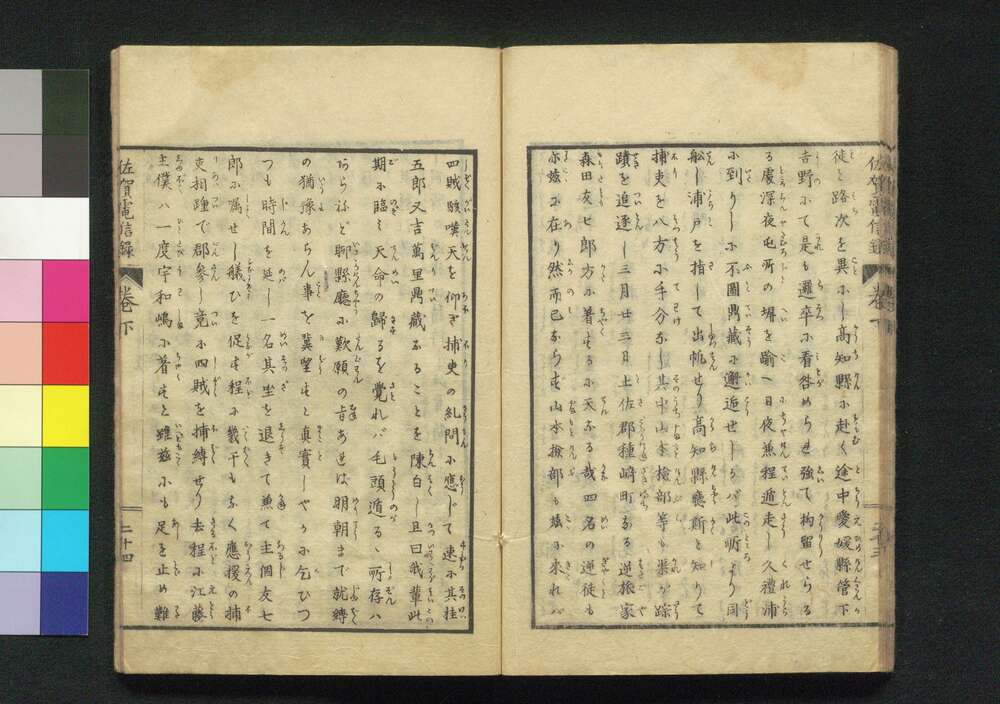 徒と路次を異にし高知縣に赴く途中愛媛縣管下
吉野にて是も邏卒に看咎められ強て拘留せらる
る處深夜屯所の塀を踰へ日夜兼程遁走し久禮浦
に到りしに不圖鼎藏に邂逅せしかバ此所より同
船し浦戸を指して出帆せり高知縣聽斯と知りて
捕吏を八方に手分なし其中山本撿部等も渠が踪
蹟を追逐し三月廿三日土佐郡種﨑町なる逆旅家
森田友七郎方に着するに天なる哉四名の逆徒も
亦玆に在り然而已ならず山本撿部も蹟に來れバ
佐賀電信録
卷下
二十三
四賊駭嘆天を仰ぎ捕吏の糺問に應じて速に其桂
五郎又吉萬里鼎藏なることを陳白し且曰我輩此
期に臨ミ天命の歸するを覺れバ毛頭遁るゝ所存ハ
あらねど聊縣廳に歎願の旨あれは明朝まで就縛
の猶豫あらん事を冀望すと真實しやかに乞ひつ
つも時間を延し一名其坐を退きて兼て主個友七
郎に囑せし艤ひを促す程に幾干もなく應援の捕
吏相踵で郡參し竟に四賊を捕縛せり去程に江藤
主僕ハ一度宇和嶋に着すと雖玆にも足を止め難
佐賀電信録
卷下
二十四